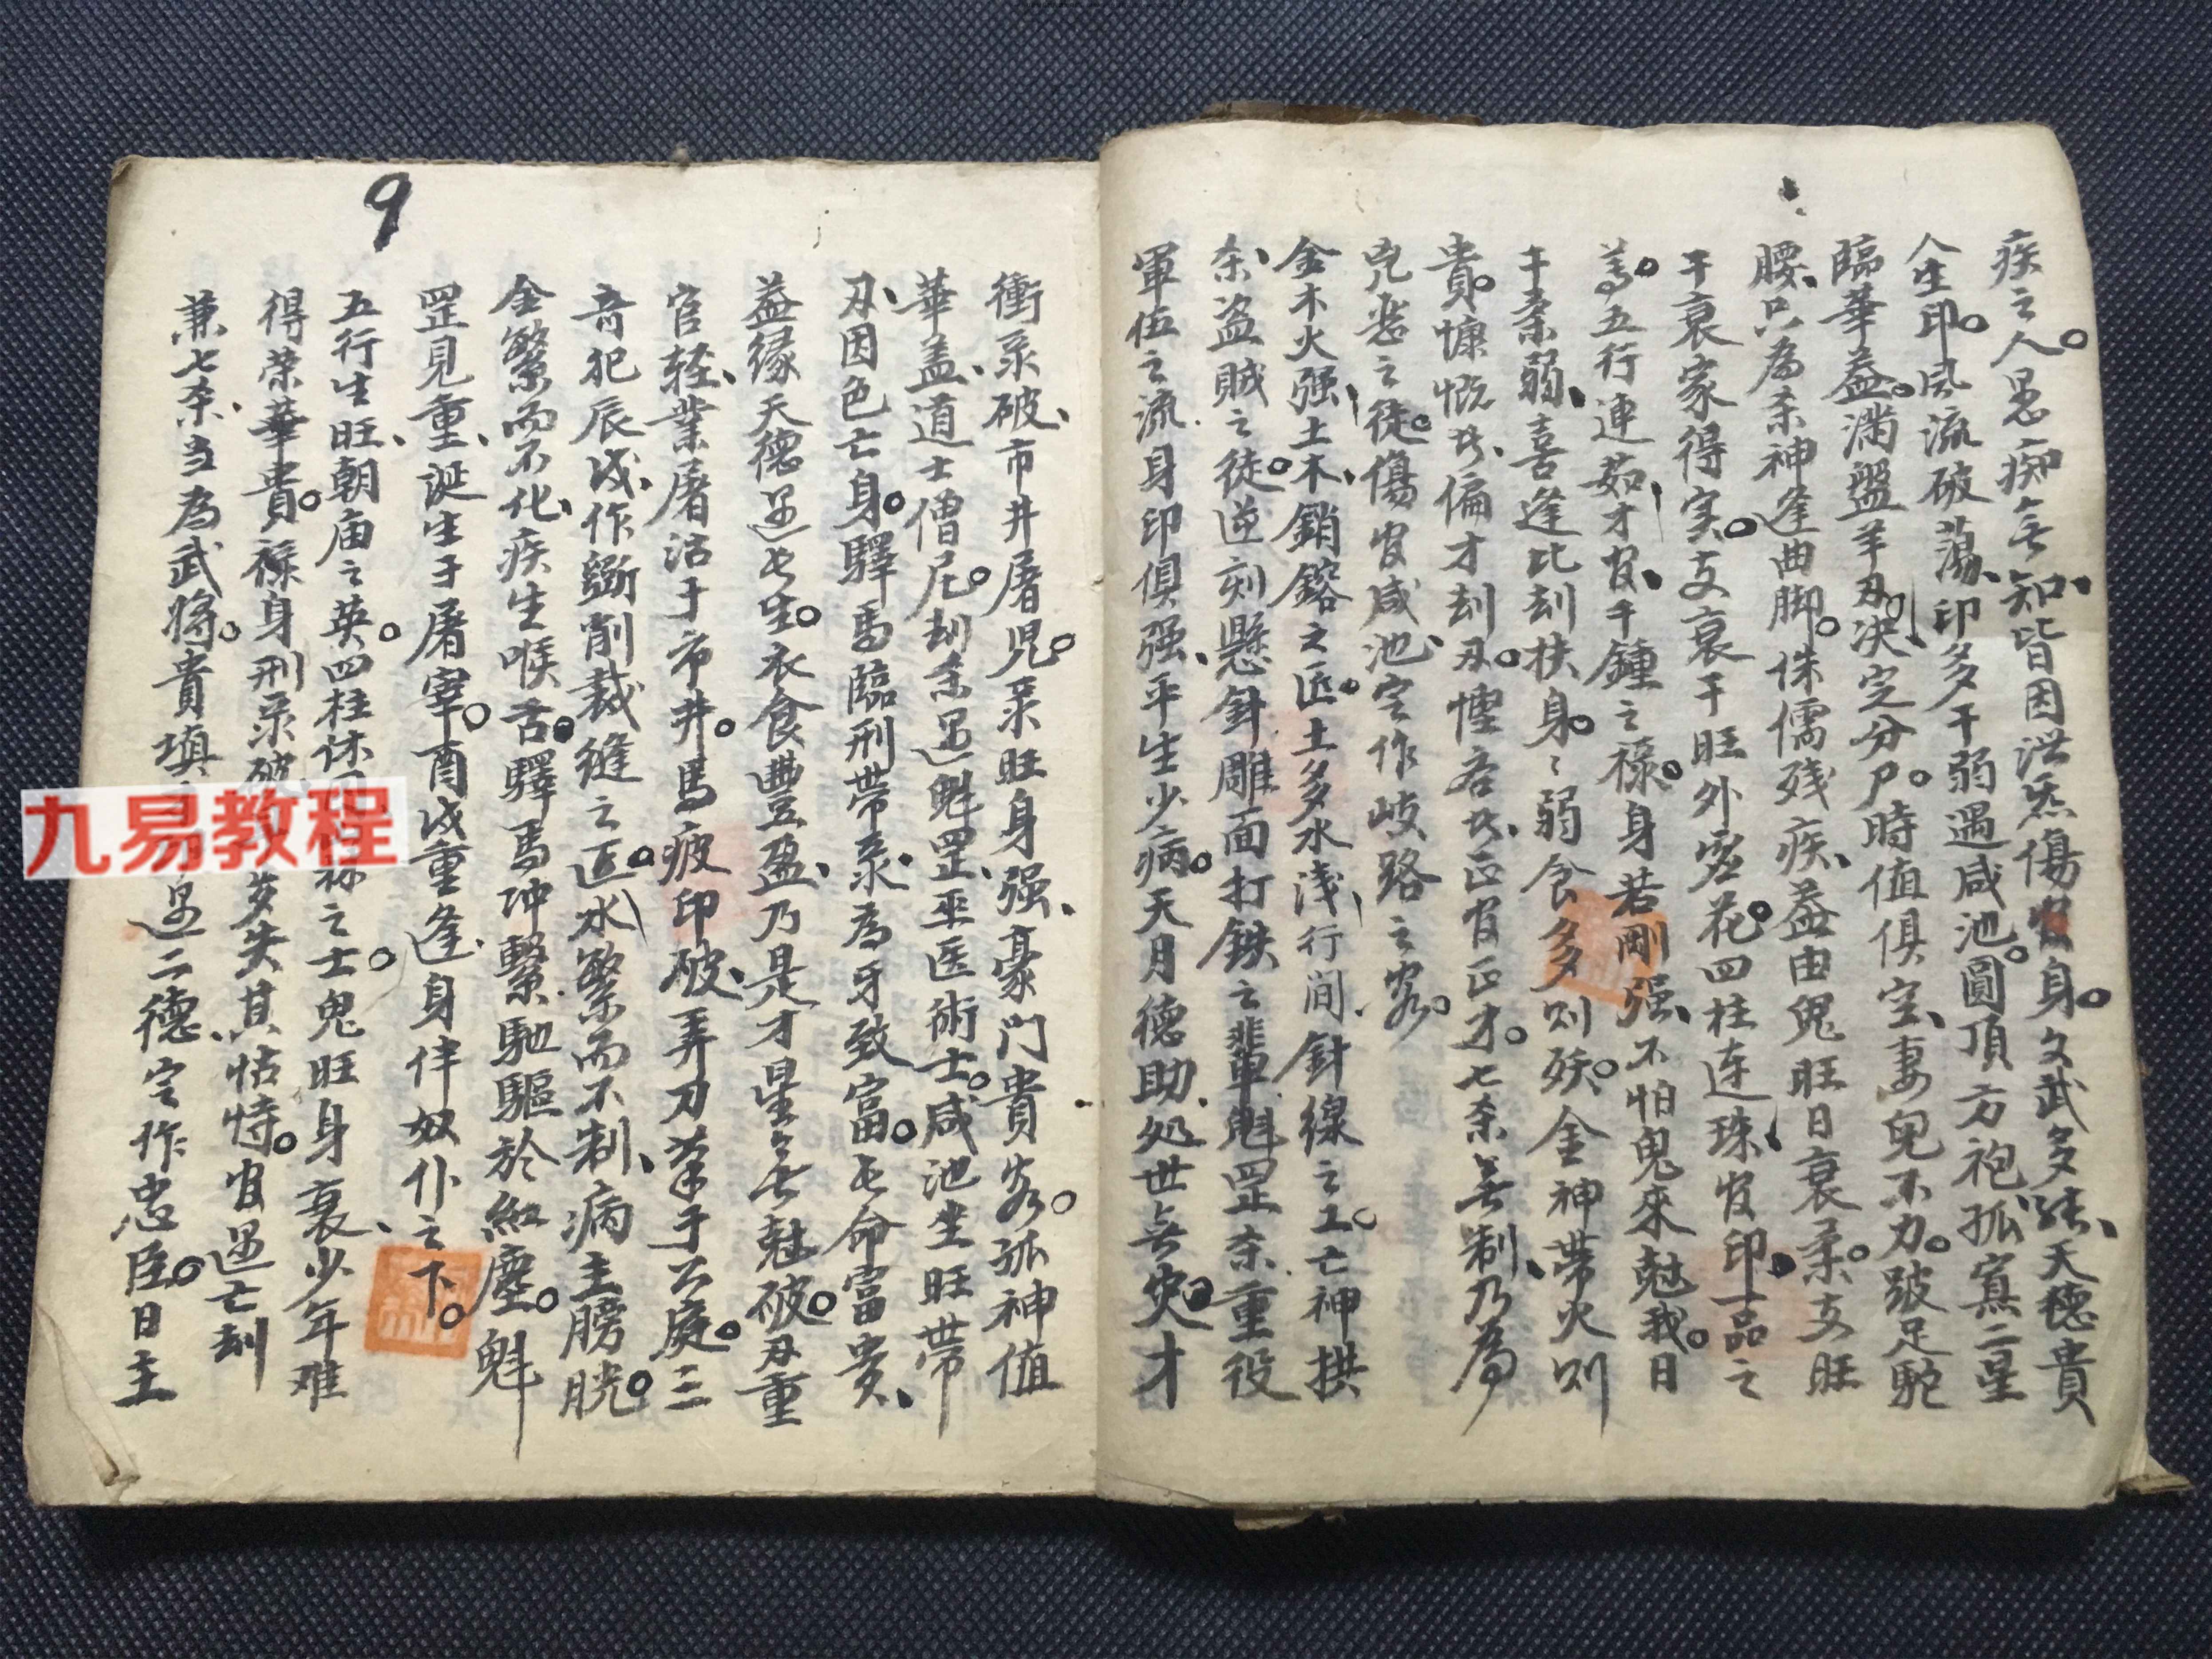 疾之人。愚痴無知、皆因泄炁傷官身。文武多
人生印。風流破蕩、印多干弱遇咸池。圓頂方袍、孤寡二星
臨華蓋。滿盤羊刃、决定分尸。時值俱空、妻兒不力。跛足駝
腰、只為杀神逢曲脚。侏儒残疾、盖由鬼旺日衰柔。支旺
干衰家得实。支衰干旺外宻花。四柱连珠、官印一品之
五行連茹、才官、千鍾之禄。身若剛强、不怕鬼來尅我。日
干柔弱、喜逢比刦扶身。身弱食多则殀。金神帶火则
貴。慷慨其偏才刦刃。慳吝其正官正才。七杀無制、乃為
兇惡之徒。傷官咸池、定作岐路之客。
金木火强、土木、銷鎔之匠。土多水淺、行间針線之工。亡神拱
杀、盗賊之徒。逆刻懸針、雕面打鉄之輩。魁罡杀重、役
軍伍之流。身印俱强、平生少病。天月德助、処世無灾。才
9
衝杀破、市井屠児。杀旺身强、豪门貴客。孤神值
華盖、道士僧尼。刦杀遇魁罡、巫医術士。咸池坐旺帶
刃、因色亡身。驛馬臨刑帶杀、為牙致富。
益缘天德遇長生。衣食豊盈、乃是才星無尅破。刃重
官轻、業屠沽于市井。馬疲印破、弄刀筆于公庭。三
奇犯辰戌、作鋤削裁縫之匠。水繁而不制、病主膀胱。
金繁而不化、疾生喉舌。驛馬冲繫、馳驅於紅塵。魁
罡見重、誕生于屠宰。酉戌重逢、身伴奴仆之下。
五行生旺、朝庙之英。四柱休囚、之士。鬼旺身衰、少年难
得荣華貴。禄身刑杀破、多失其怙恃。官遇亡刦
兼七杀、当為武將。貴填遇二德、定作忠臣。日主
九易教程